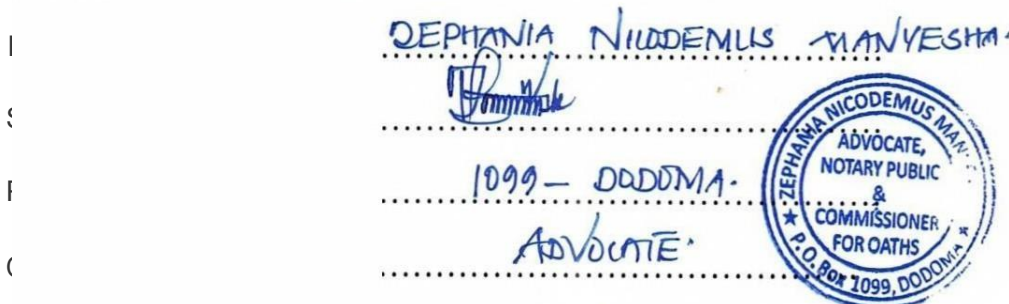 ZEPHANIA NICODEMUS MANYESHA.
1099 – DODOMA.
ADVOCATE.
★ ZEPHANIA NICODEMUS MAN
ADVOCATE,
NOTARY PUBLIC
&
COMMISSIONER
FOR OATHS
P.O. Box 1099, DODOMA ★